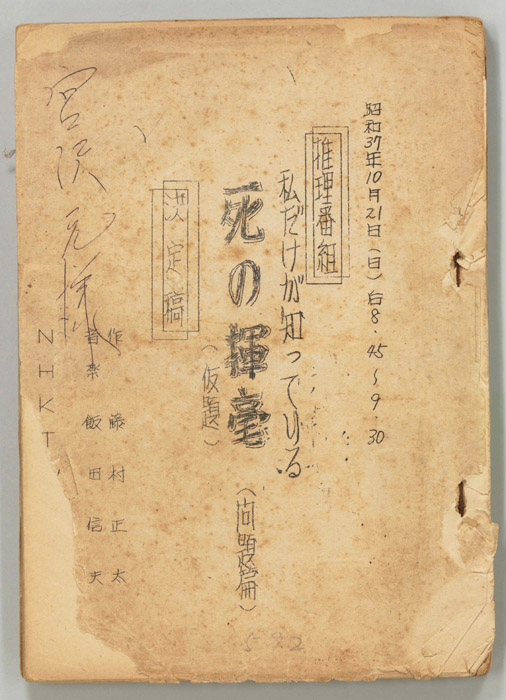 昭和37年10月21日(日)自8.45~9.30
推理番組
私だけが知っている
死の揮毫
(問題篇)
(仮題)
決定稿
作 藤村正太
音楽 飯田信夫
NHKT
宮沢
様
592